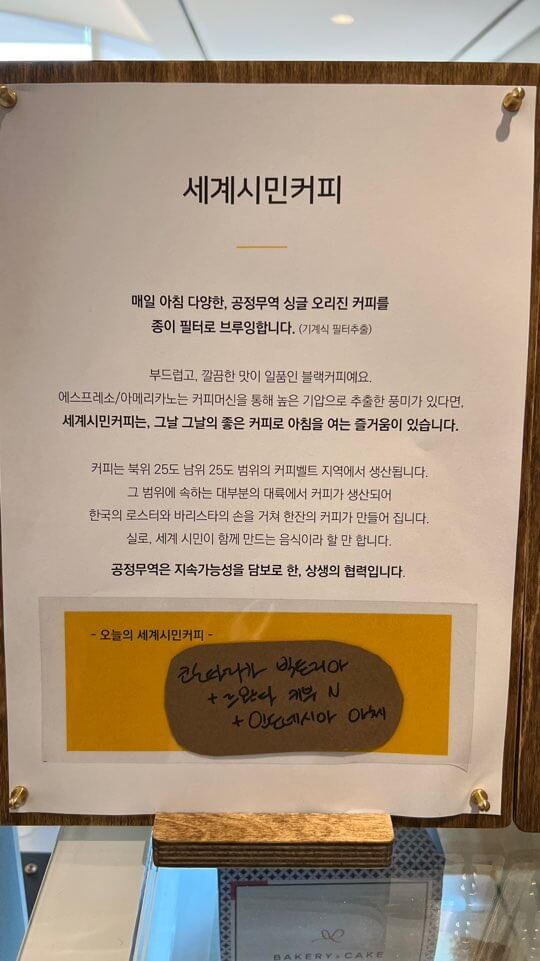 세계시민커피
매일 아침 다양한, 공정무역 싱글 오리진 커피를
종이 필터로 브루잉합니다. (기계식 필터추출)
부드럽고, 깔끔한 맛이 일품인 블랙커피예요.
에스프레소/아메리카노는 커피머신을 통해 높은 기압으로 추출한 풍미가 있다면,
세계시민커피는, 그날 그날의 좋은 커피로 아침을 여는 즐거움이 있습니다.
커피는 북위 25도 남위 25도 범위의 커피벨트 지역에서 생산됩니다.
그 범위에 속하는 대부분의 대륙에서 커피가 생산되어
한국의 로스터와 바리스타의 손을 거쳐 한잔의 커피가 만들어 집니다.
실로, 세계 시민이 함께 만드는 음식이라 할 만 합니다.
공정무역은 지속가능성을 담보로 한, 상생의 협력입니다.
- 오늘의 세계시민커피 -
빅토리아
+ 르완다 N
+ 인도네시아 아체
BAKERY & CAKE